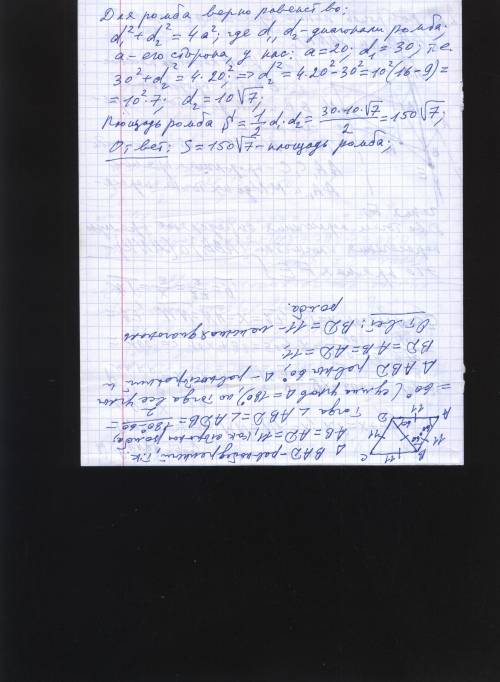 Для ромба верно равенство:
d₁² + d₂² = 4a², где d₁, d₂ - диагонали ромба.
a - его сторона, у нас: a = 20; d₁ = 30; т.е.
30² + d₂² = 4·20²; => d₂² = 4·20² - 30² = 10²(16 - 9) =
= 10²·7; d₂ = 10√7;
Площадь ромба S = 1/2 d₁·d₂ = 30·10·√7/2 = 150√7;
Ответ: S = 150√7 - площадь ромба;
Δ BAD - равнобедренный, т.к.
AB = AD = 11, как стороны ромба.
Тогда ∠ABD = ∠ADB = 180°-60°/2 =
= 60° (сумма углов Δ = 180°), но тогда все углы
Δ ABD равны 60°, Δ - равносторонний и
BD = AB = AD = 11;
Ответ: BD = 11 - меньшая диагональ
ромба.
B
C
11
11
11
11
A
D
60°
60°
60°